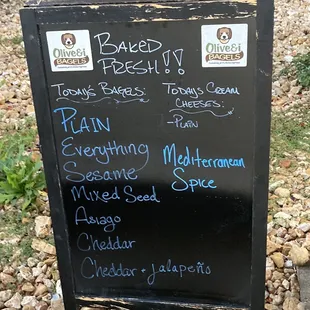 Olive&i
BAGELS
Olive&i
BAGELS
BAKED
FRESH!!
TODAY'S
BAGELS:
TODAYS CREAM
CHEESES:
PLAIN
Everything
Sesame
Mixed Seed
Asiago
Cheddar
Cheddar + jalapeño
-PLAIN
Mediterranean
Spice